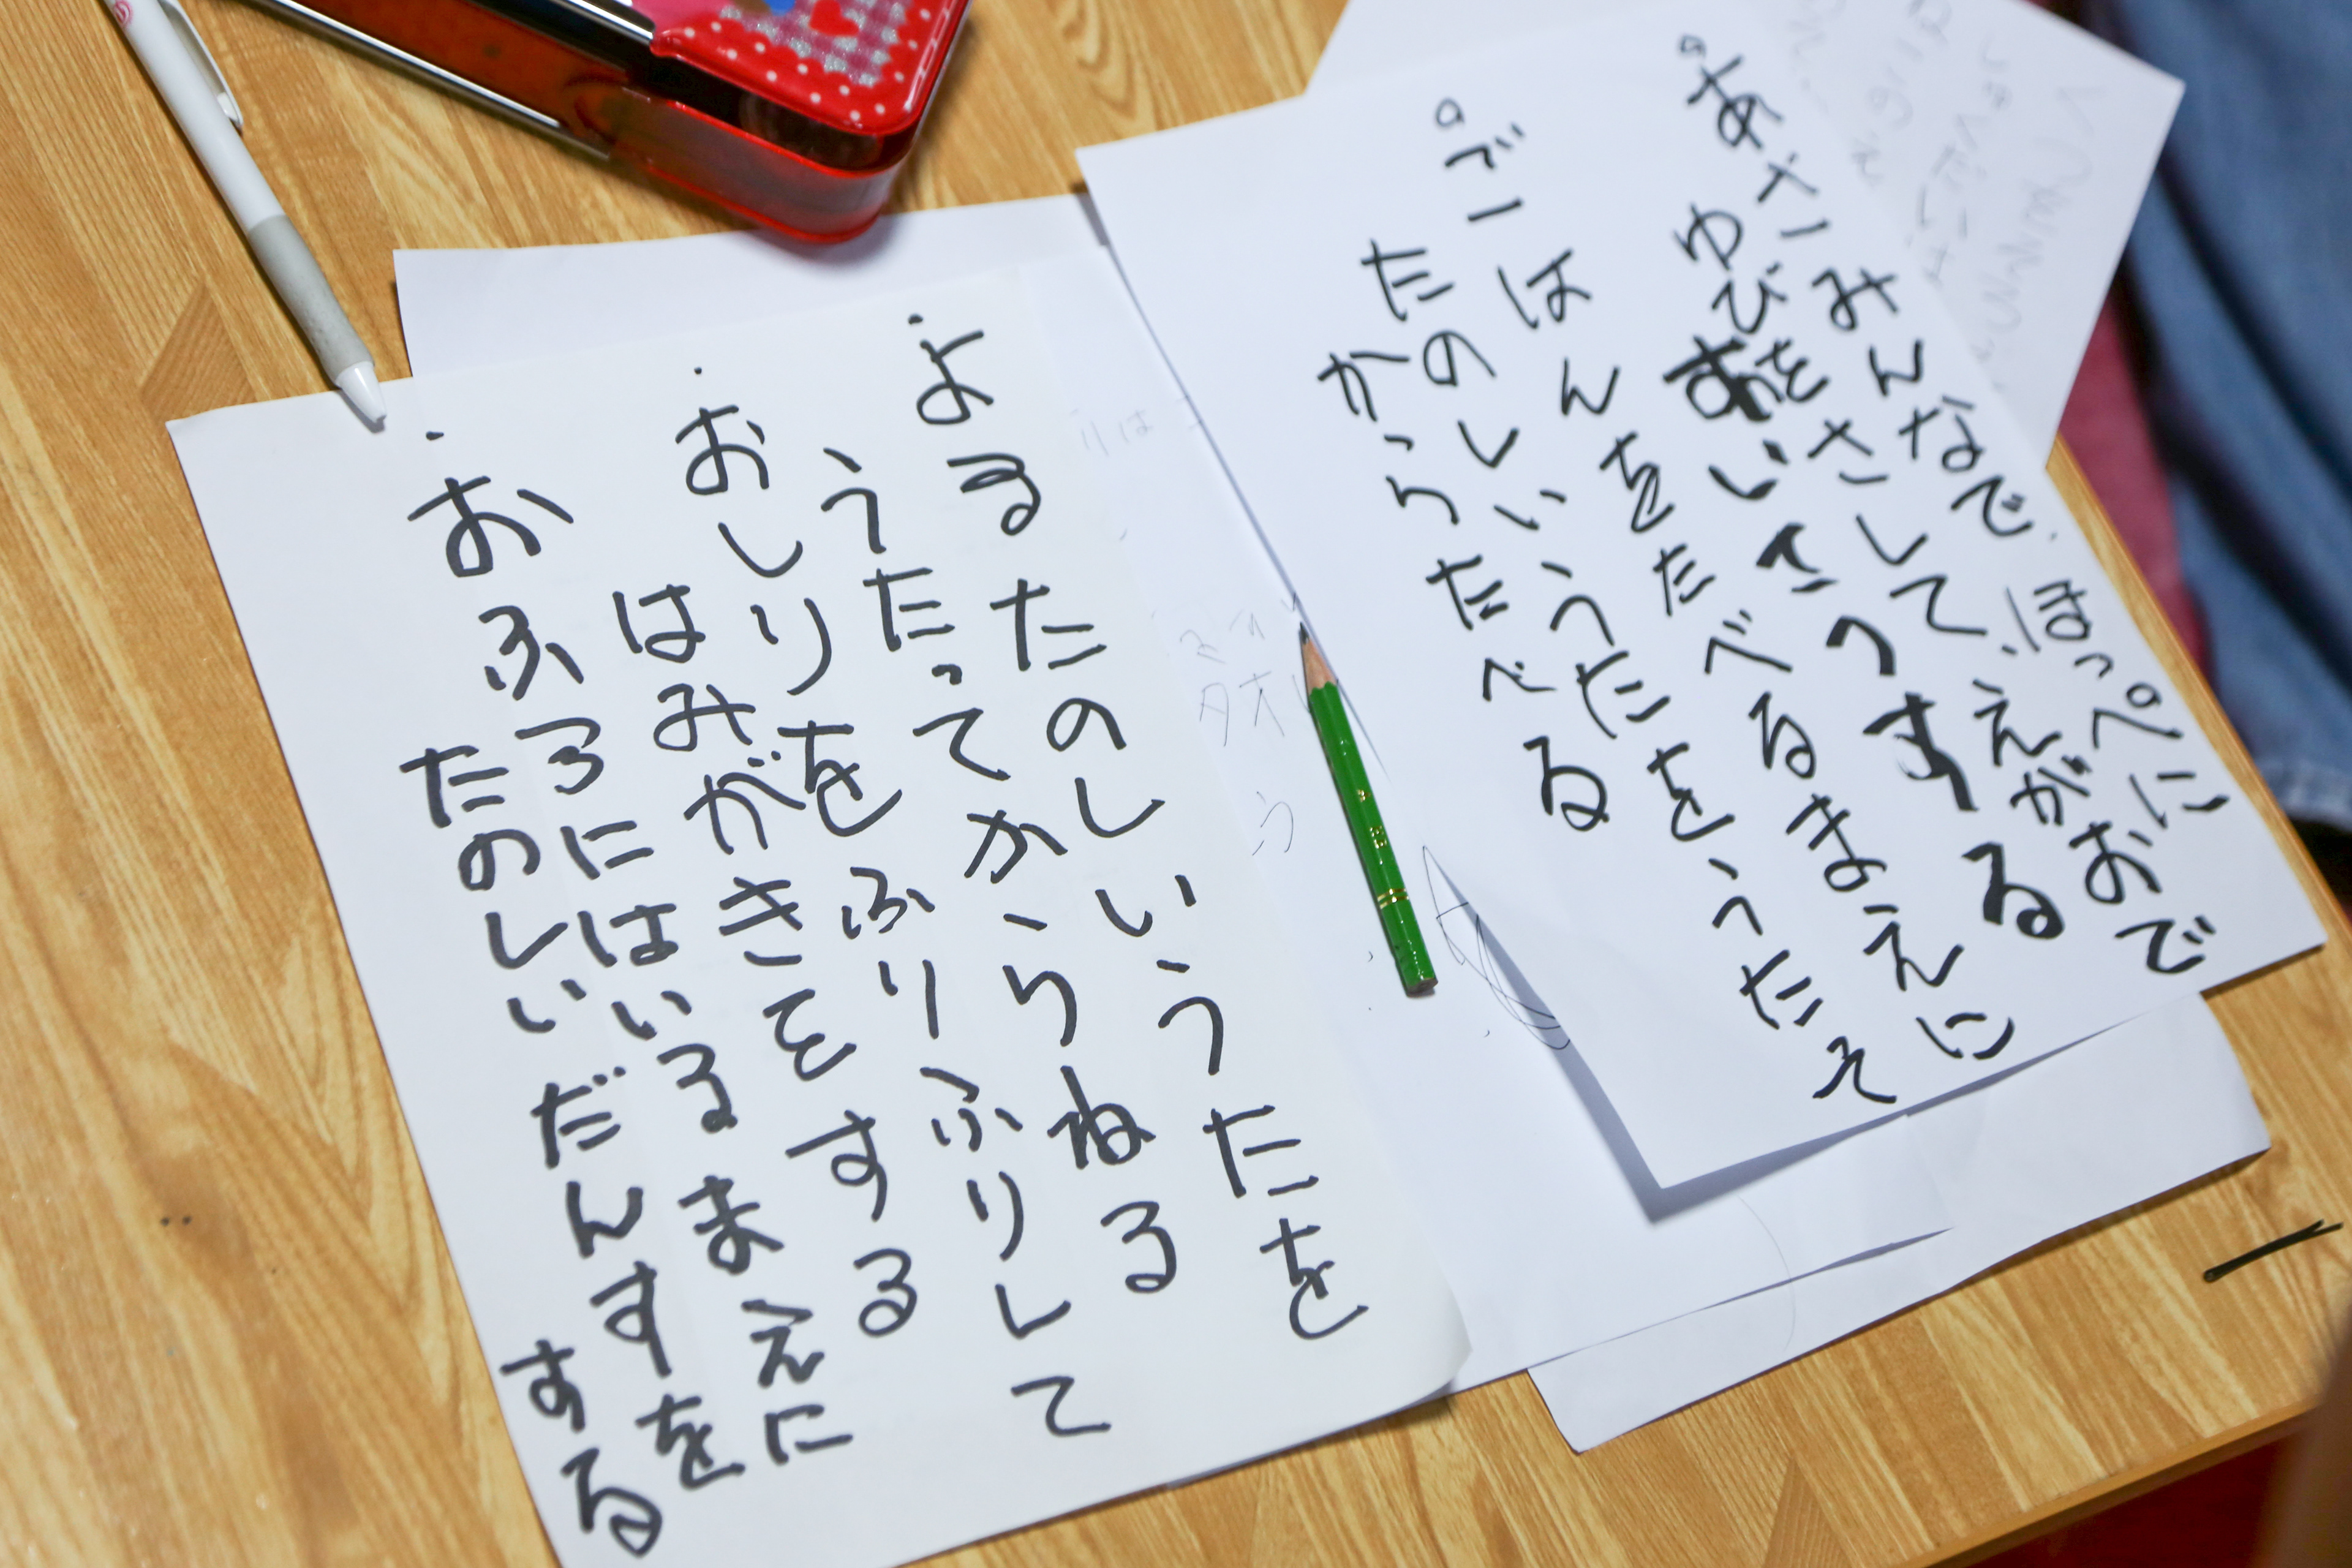 。あさみんなで、ほっぺに
ゆびをさして、えがおで
あいさつする
。ごはんをたべるまえに
たのしいうたをうたそ
からたべる
・よるたのしいうたを
うたってからねる
・おしりをふりふりして
はみがきをする
・おふろにはいるまえに
たのしいだんすを
する